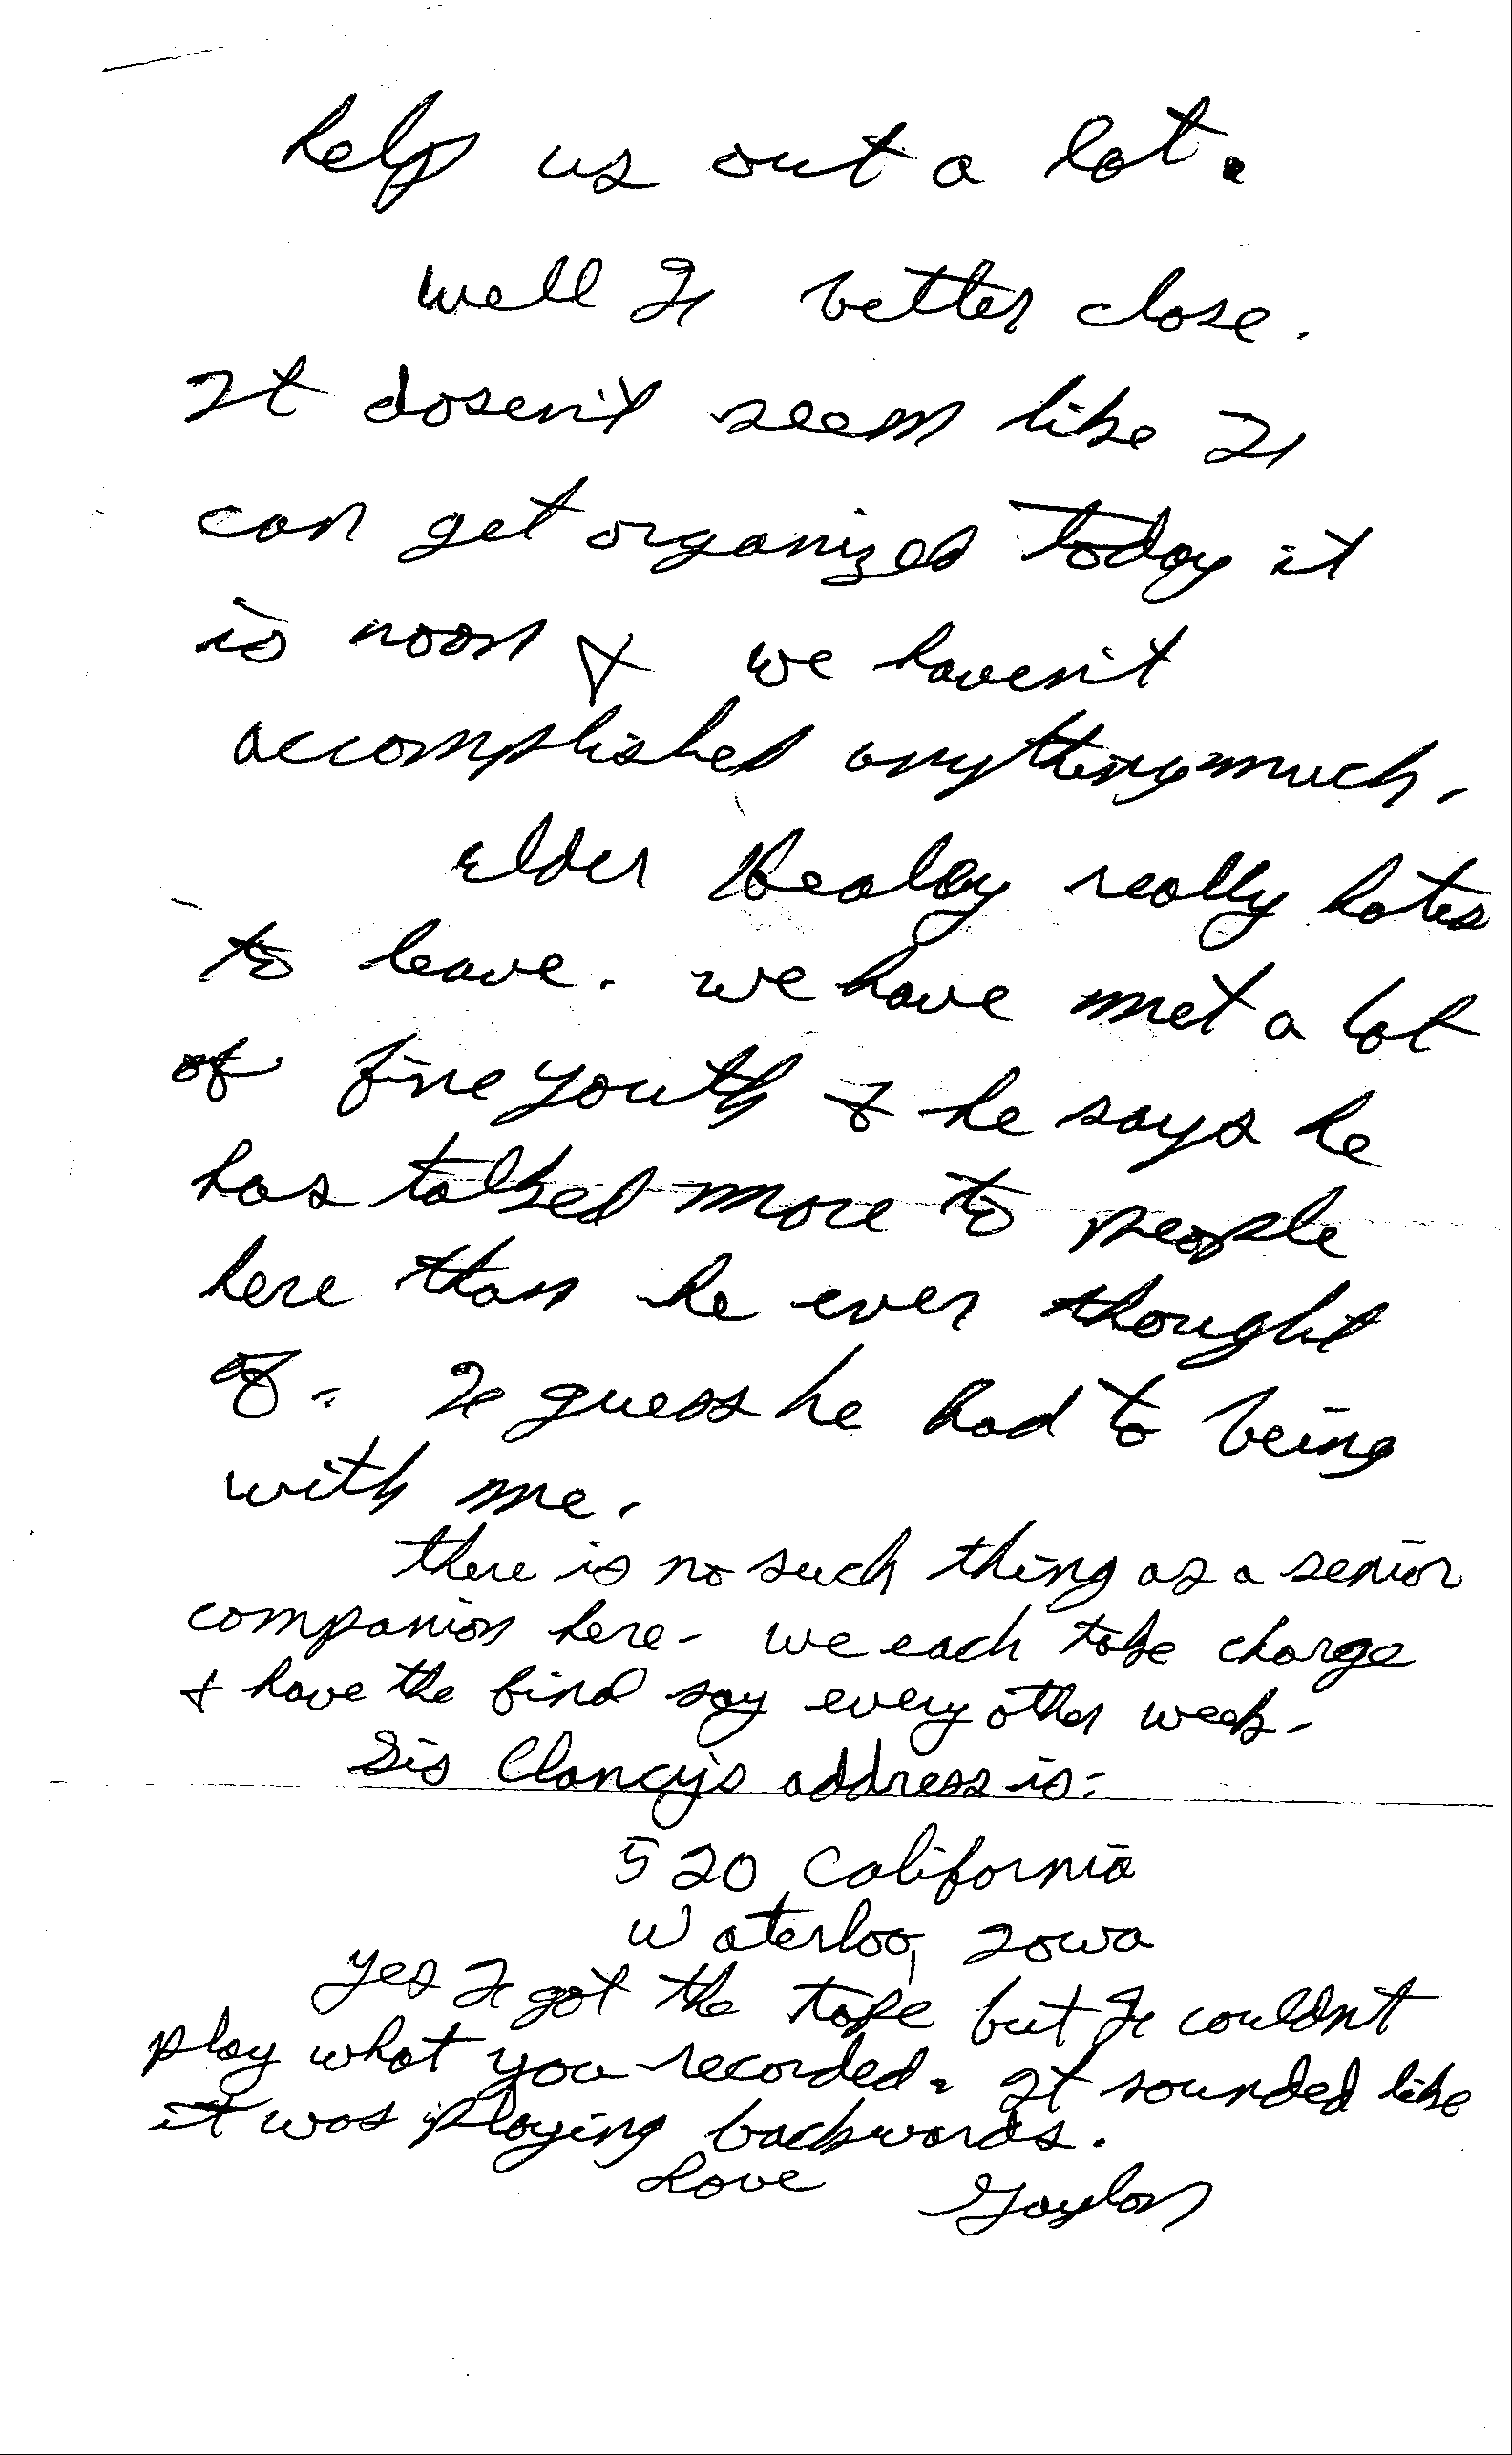 help us out a lot.
well I better close.
It dosen't seem like I
can get organized today it
is noon & we haven't
accomplished anything much.
Elder Healey really hates
to leave. we have met a lot
of fine youth & he says he
has talked more to people
here than he ever thought
of. I guess he had to being
with me.
there is no such thing as a senior
companion here - we each take charge
& have the final say every other week -
Sis Clancy's address is:
520 California
Waterloo, Iowa
yes I got the tape but I couldnt
play what you recorded. It sounded like
it was playing backwards.
Love Gaylon